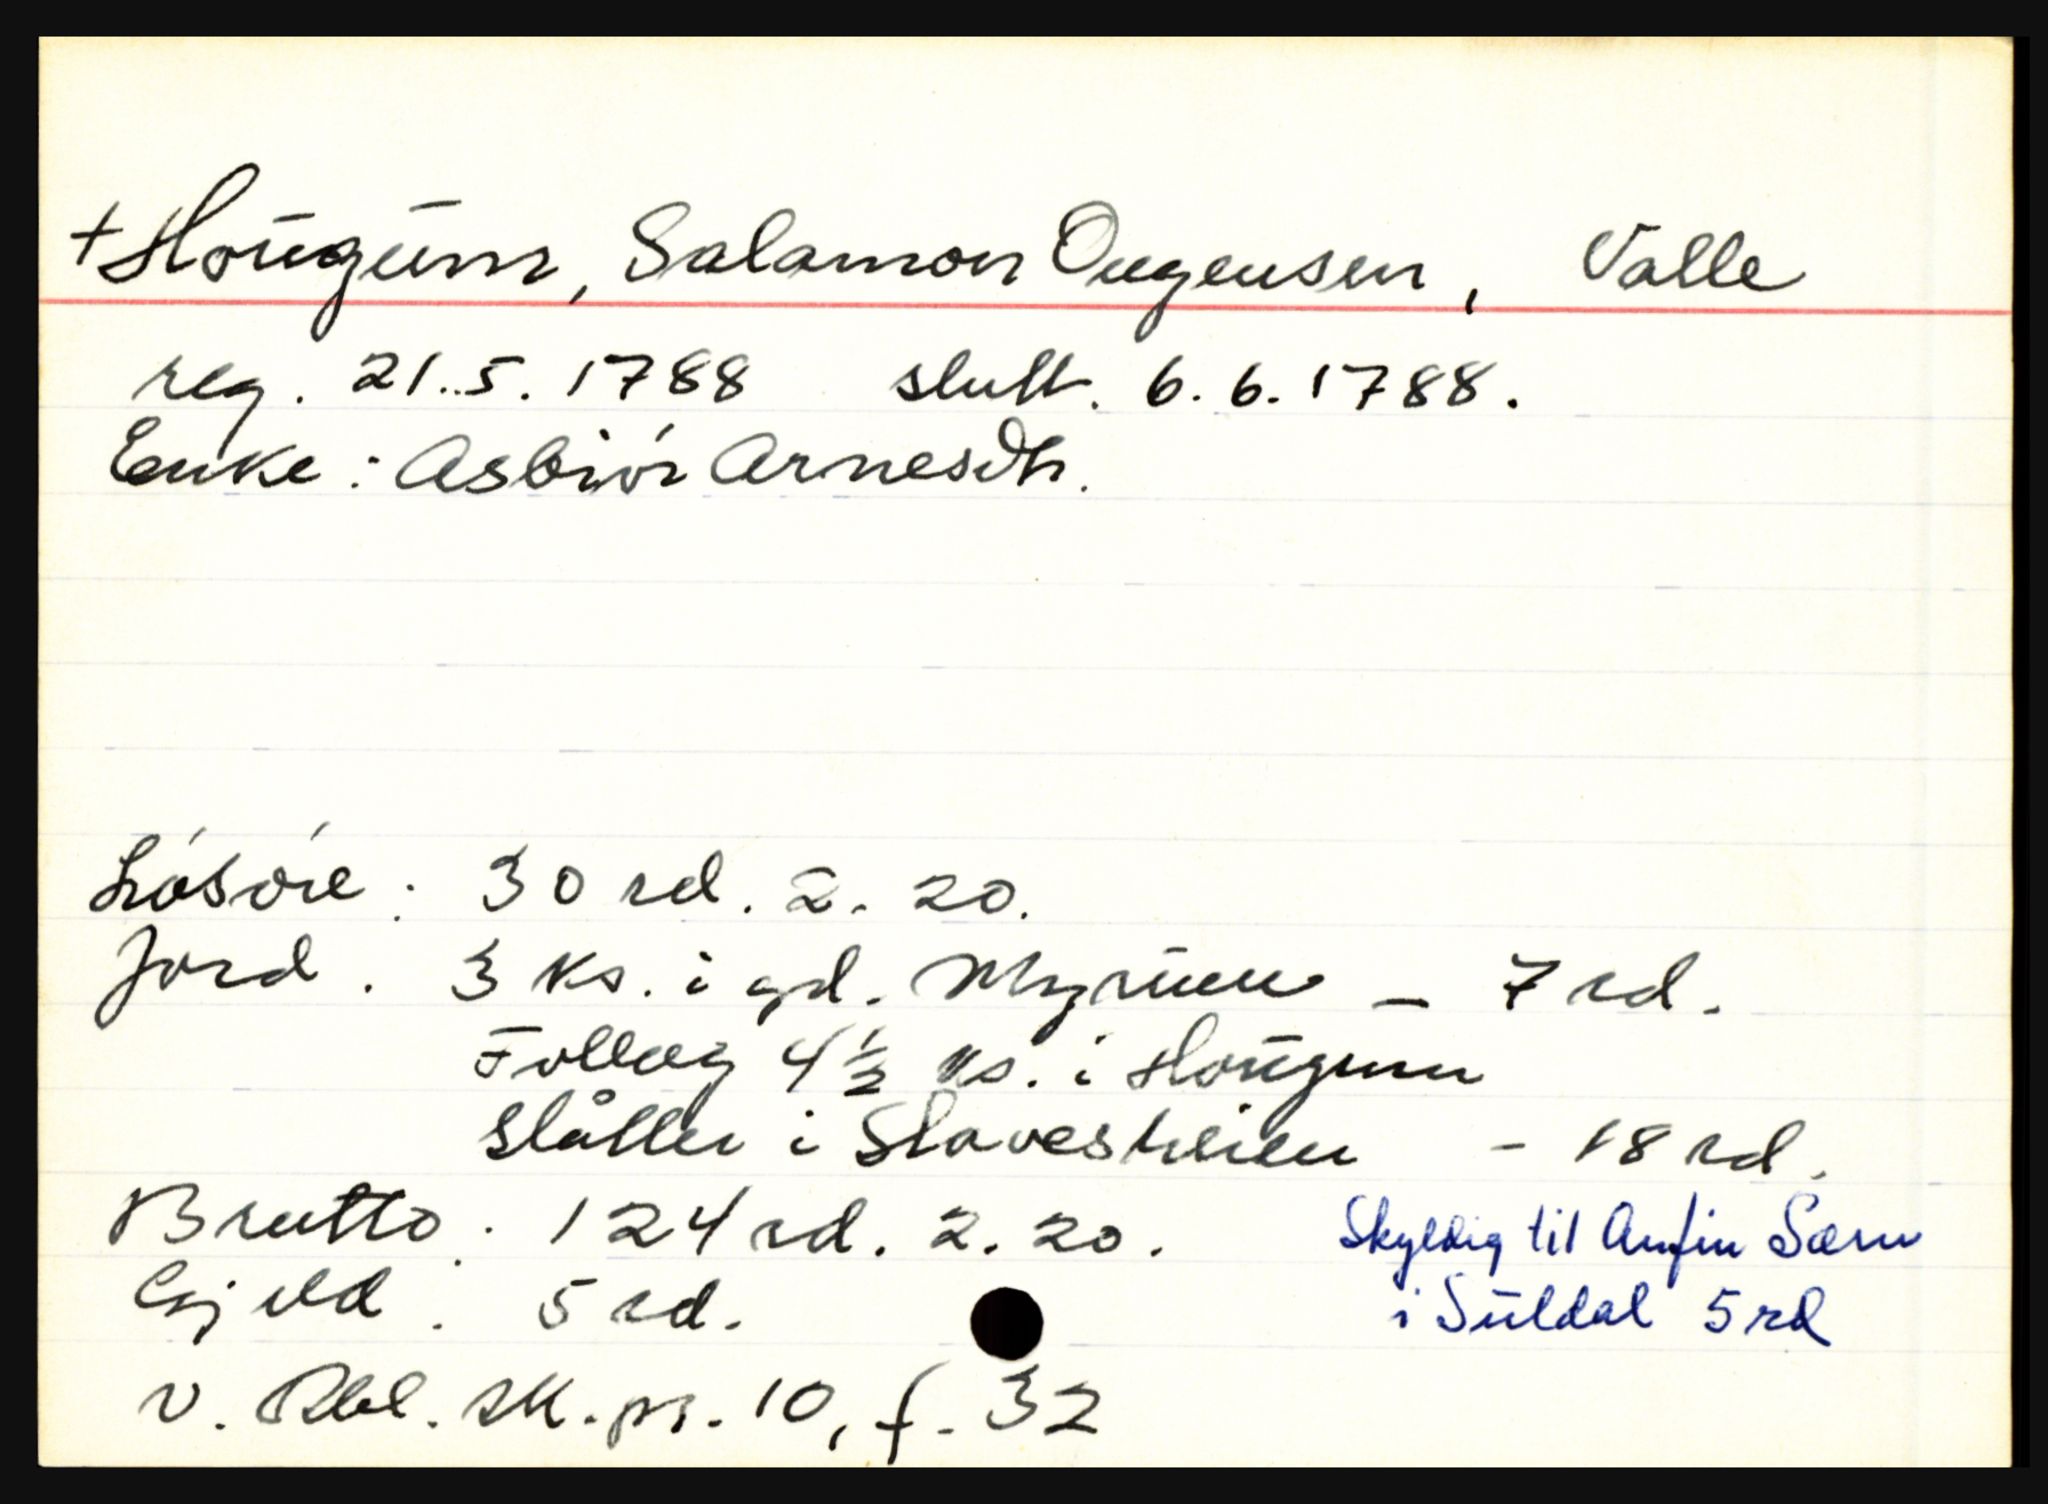 + Hougum, Salamon Ougensen, Valle
reg. 21.5.1788 slutt. 6.6.1788.
Enke: Asbiór Arnesdtr.
Lósóre: 30 rd. 2. 20.
Jord. 3 ks. i gd. Myrum – 7 rd.
Follaug 4½ ks. i Hougum
Slåtter i Slavesheien – 18 rd.
Brutto: 124 rd. 2. 20.
Skyldig til Anfin Særu
Gjeld: 5 rd.
i Suldal 5 rd
v. Rbl. sk. pr. 10, f. 32